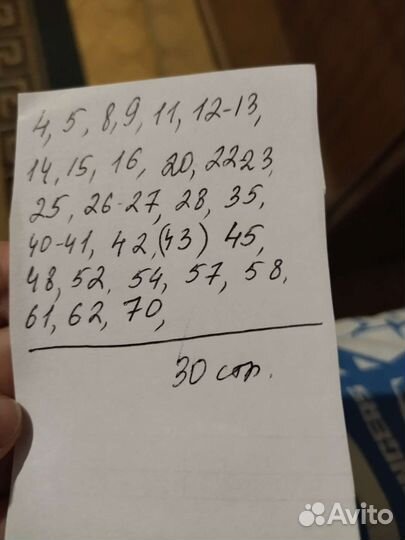 4, 5, 8, 9, 11, 12-13,
14, 15, 16, 20, 22 23,
25, 26-27, 28, 35,
40-41, 42, (43) 45,
48, 52, 54, 57, 58,
61, 62, 70,
30 стр.
Avito